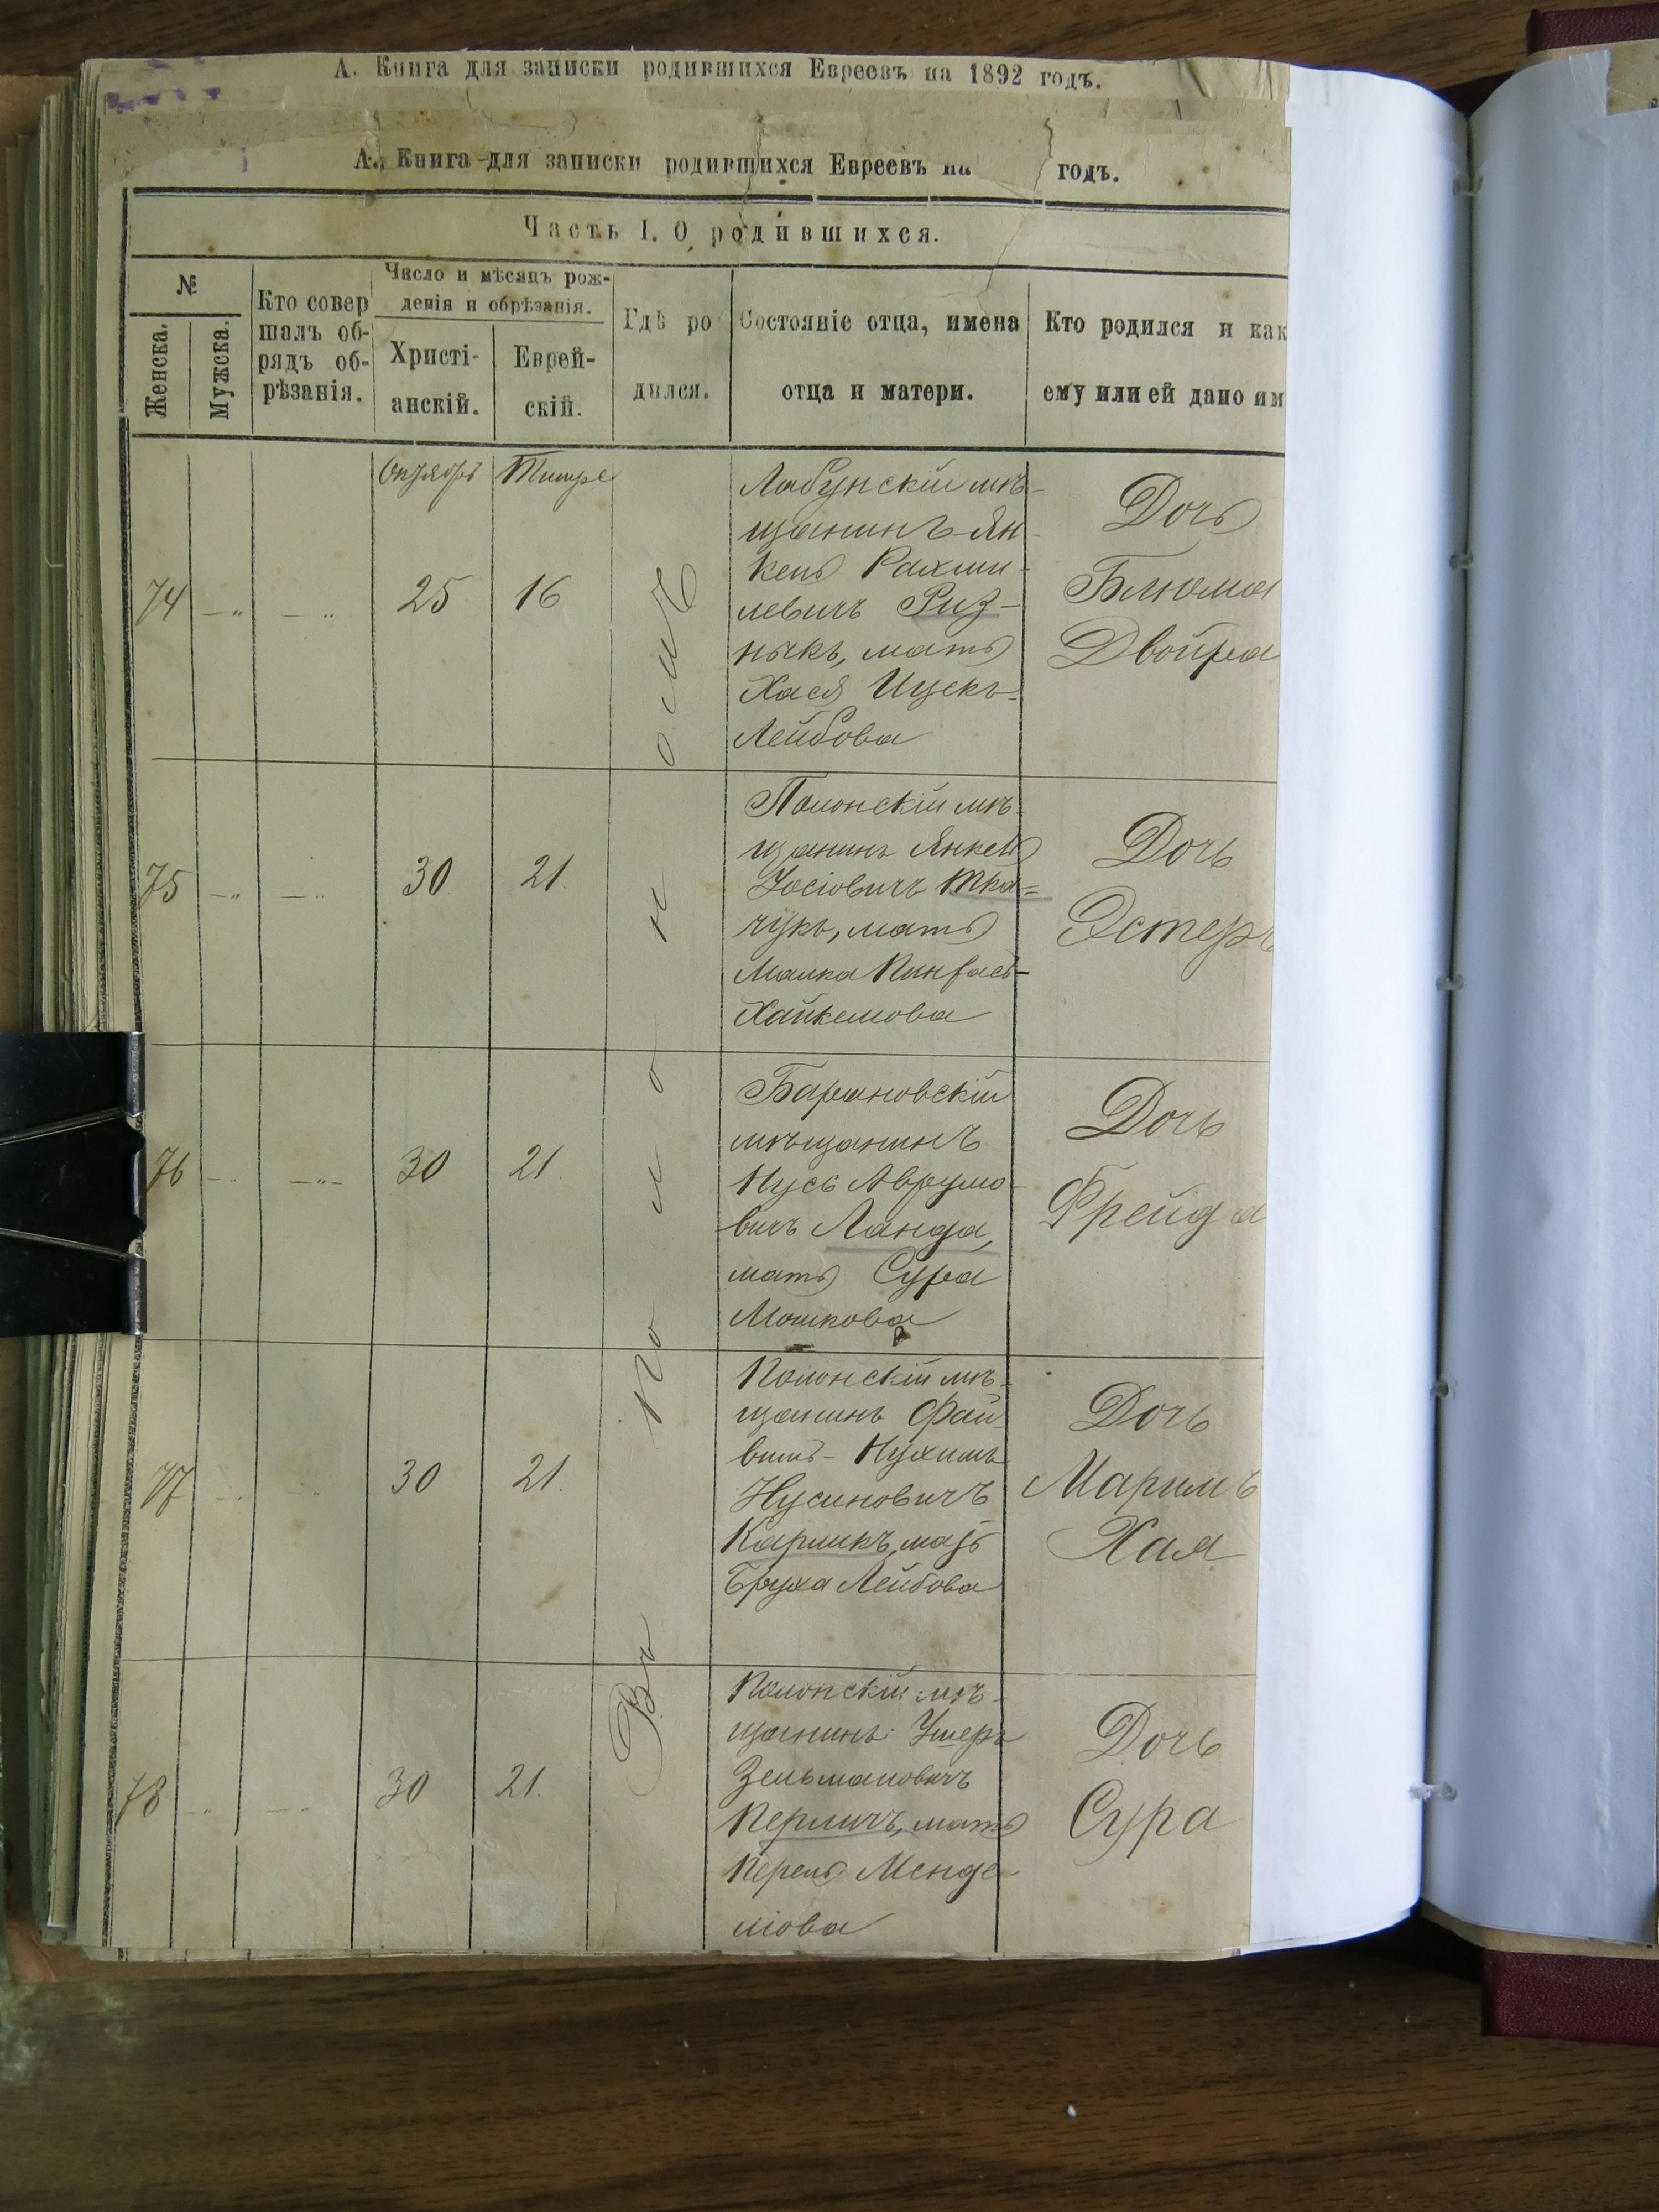 А. Книга для записки родившихся Евреевъ на 1892 годъ.
А. Книга для записки родившихся Евреевъ на годъ.
Часть I. О родившихся.
№
Женска.
Мужска.
Кто совер
шалъ об-
рядъ об-
рѣзанія.
Число и мѣсяцъ рож-
денія и обрѣзанія.
Христі-
анскій.
Еврей-
скій.
Гдѣ ро
дился.
Состояніе отца, имена
отца и матери.
Кто родился и как
ему или ей дано им
Октябрь
Тишре
Въ Полонномъ
74
25
16
Лабунскій мѣ-
щанинъ Ян-
кель Рахми-
левичъ Риз-
ныкъ, мать
Хася Ицекъ-
Лейбова
Дочь
Блюма
Двойра
75
30
21.
Полонскій мѣ-
щанинъ Янкель
Іосіовичъ Тка=
чукъ, мать
Малка Пинхасъ-
Хайкелова
Дочь
Эстеръ
76
30
21.
Барановскій
мѣщанинъ
Нусь Аврумо-
вичъ Ланда,
мать Сура
Мошкова
Дочь
Фрейда
77
30
21.
Полонскій мѣ-
щанинъ Фай
вишъ-Нухимъ
Нусиновичъ
Карликъ, мать
Бруха Лейбова
Дочь
Маримъ
Хая
78
30
21.
Полонскій мѣ-
щанинъ Ушеръ
Зельмановичъ
Перличъ, мать
Перель Менде-
лiова
Дочь
Сура